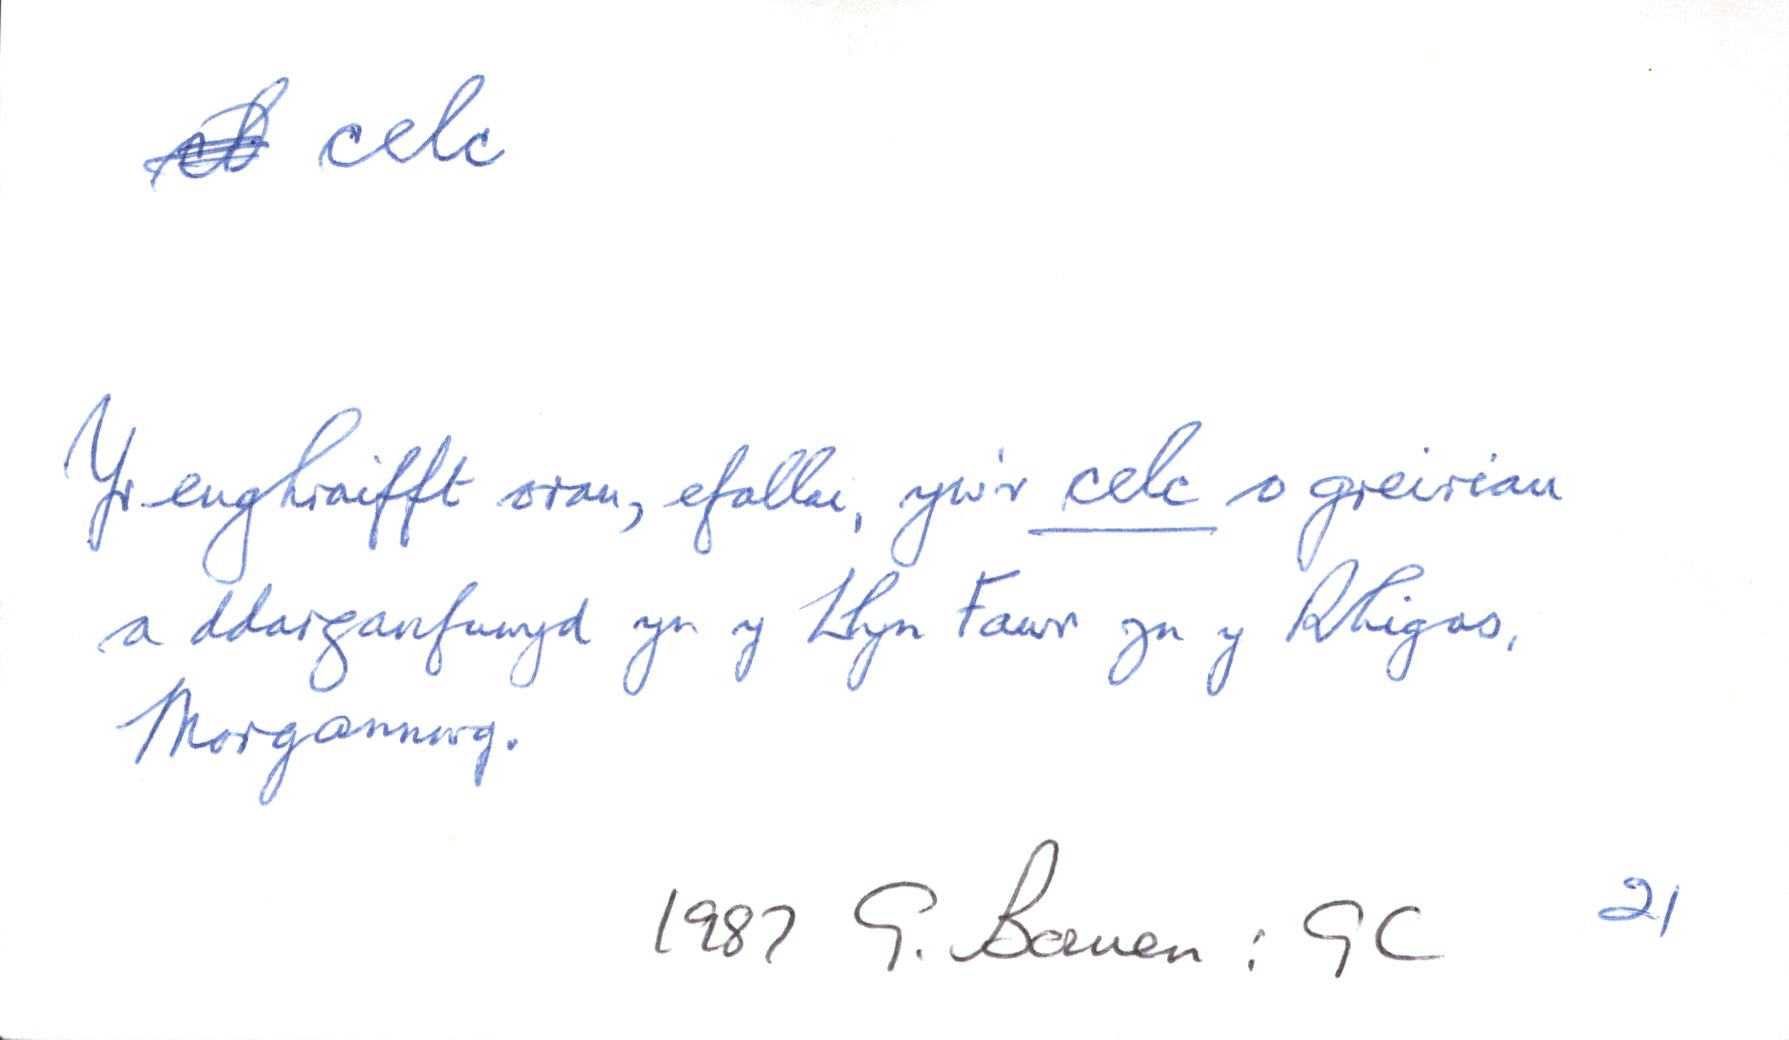 celc
Yr enghraifft orau, efallai, yw'r celc o greiriau
a ddarganfuwyd yn y Llyn Fawr yn y Rhigos,
Morgannwg.
1987 G. Bowen : GC 21